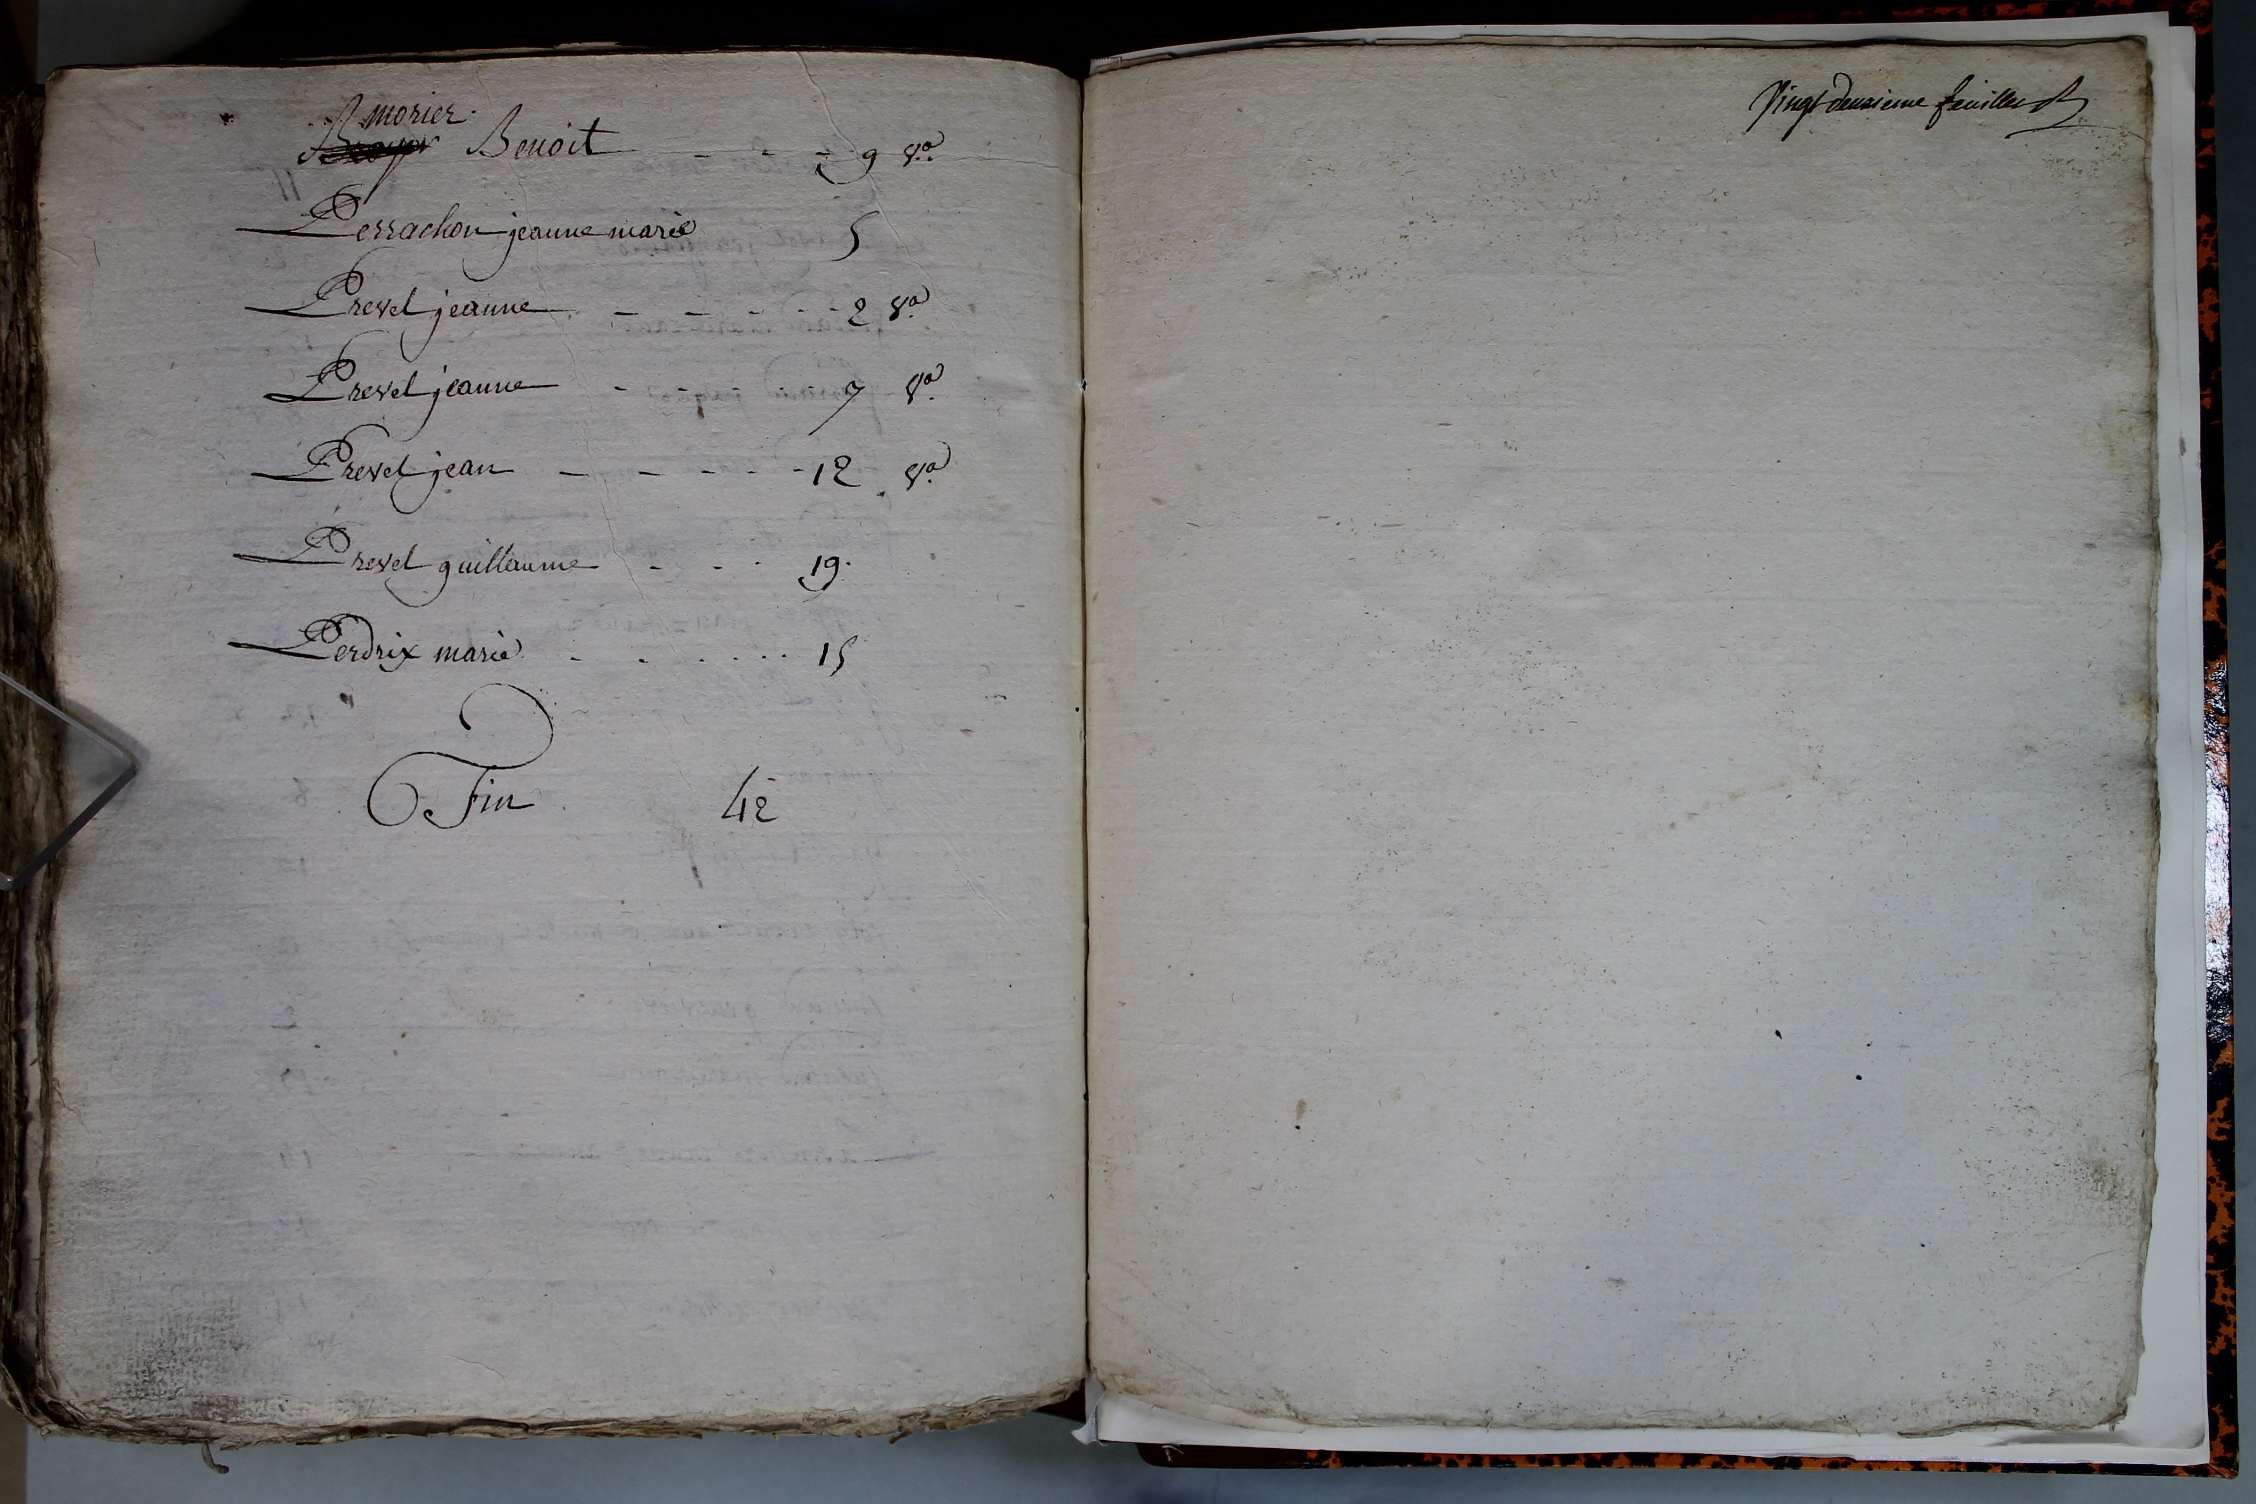 morier
Benoit - - - 9 vo
Perrachon jeanne marie 5
Prevel jeanne - - - - - 2 vo
Prevel jeanne - - - - 7 vo
Prevel jean - - - - - 12 vo
Prevel guillaume - - - 19
Perdrix marie . . . . . . 15
Fin 42
Vingt deuxieme feuillet